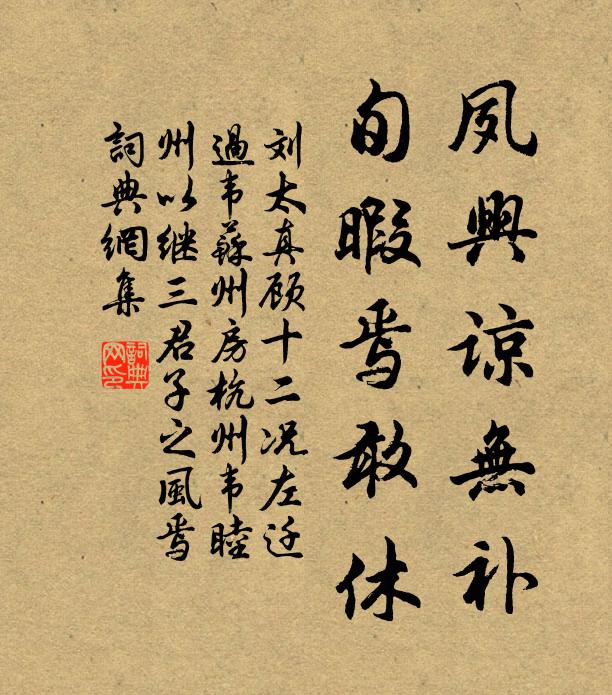 夙興谅無补
旬暇焉敢休
刘太真顾十二况左迁
過韦蘇州房杭州韦睦
州以继三君子之風焉
詞典網集
詞典网印